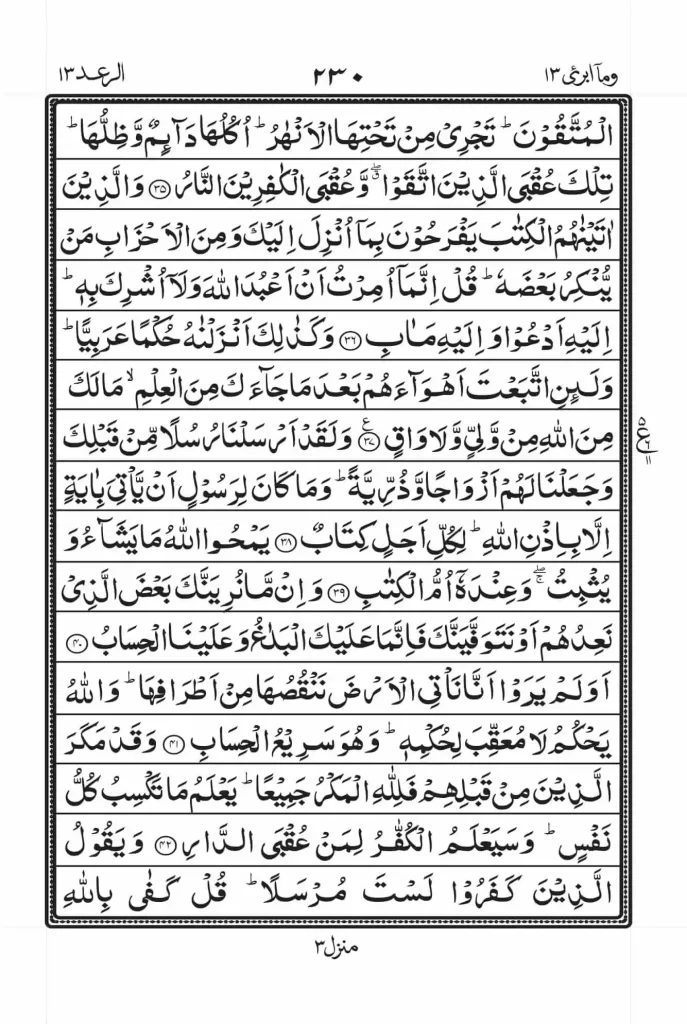 ومآ ابرئ ١٣ ٢٣٠ الرعد ١٣
الْمُتَّقُوْنَ ؕ تَجْرِیْ مِنْ تَحْتِهَا الْاَنْهٰرُ ؕ اُكُلُهَا دَآىِٕمٌ وَّظِلُّهَا ؕ
تِلْكَ عُقْبَی الَّذِیْنَ اتَّقَوْا ۖۗ وَّعُقْبَی الْكٰفِرِیْنَ النَّارُ ﴿۳۵﴾ وَالَّذِیْنَ
اٰتَیْنٰهُمُ الْكِتٰبَ یَفْرَحُوْنَ بِمَاۤ اُنْزِلَ اِلَیْكَ وَمِنَ الْاَحْزَابِ مَنْ
یُّنْكِرُ بَعْضَهٗ ؕ قُلْ اِنَّمَاۤ اُمِرْتُ اَنْ اَعْبُدَ اللّٰهَ وَلَاۤ اُشْرِكَ بِهٖ ؕ
اِلَیْهِ اَدْعُوْا وَاِلَیْهِ مَاٰبِ ﴿۳۶﴾ وَكَذٰلِكَ اَنْزَلْنٰهُ حُكْمًا عَرَبِیًّا ؕ
وَلَىِٕنِ اتَّبَعْتَ اَهْوَآءَهُمْ بَعْدَ مَا جَآءَكَ مِنَ الْعِلْمِ ۙ مَا لَكَ
مِنَ اللّٰهِ مِنْ وَّلِیٍّ وَّلَا وَاقٍ ﴿۳۷﴾ ع وَلَقَدْ اَرْسَلْنَا رُسُلًا مِّنْ قَبْلِكَ
وَجَعَلْنَا لَهُمْ اَزْوَاجًا وَّذُرِّیَّةً ؕ وَمَا كَانَ لِرَسُوْلٍ اَنْ یَّاْتِیَ بِاٰیَةٍ
اِلَّا بِاِذْنِ اللّٰهِ ؕ لِكُلِّ اَجَلٍ كِتَابٌ ﴿۳۸﴾ یَمْحُوا اللّٰهُ مَا یَشَآءُ وَ
یُثْبِتُ ۖۚ وَعِنْدَهٗۤ اُمُّ الْكِتٰبِ ﴿۳۹﴾ وَاِنْ مَّا نُرِیَنَّكَ بَعْضَ الَّذِیْ
نَعِدُهُمْ اَوْ نَتَوَفَّیَنَّكَ فَاِنَّمَا عَلَیْكَ الْبَلٰغُ وَعَلَیْنَا الْحِسَابُ ﴿۴۰﴾
اَوَلَمْ یَرَوْا اَنَّا نَاْتِی الْاَرْضَ نَنْقُصُهَا مِنْ اَطْرَافِهَا ؕ وَاللّٰهُ
یَحْكُمُ لَا مُعَقِّبَ لِحُكْمِهٖ ؕ وَهُوَ سَرِیْعُ الْحِسَابِ ﴿۴۱﴾ وَقَدْ مَكَرَ
الَّذِیْنَ مِنْ قَبْلِهِمْ فَلِلّٰهِ الْمَكْرُ جَمِیْعًا ؕ یَعْلَمُ مَا تَكْسِبُ كُلُّ
نَفْسٍ ؕ وَسَیَعْلَمُ الْكُفّٰرُ لِمَنْ عُقْبَی الدَّارِ ﴿۴۲﴾ وَیَقُوْلُ
الَّذِیْنَ كَفَرُوْا لَسْتَ مُرْسَلًا ؕ قُلْ كَفٰی بِاللّٰهِ
منزل ٣